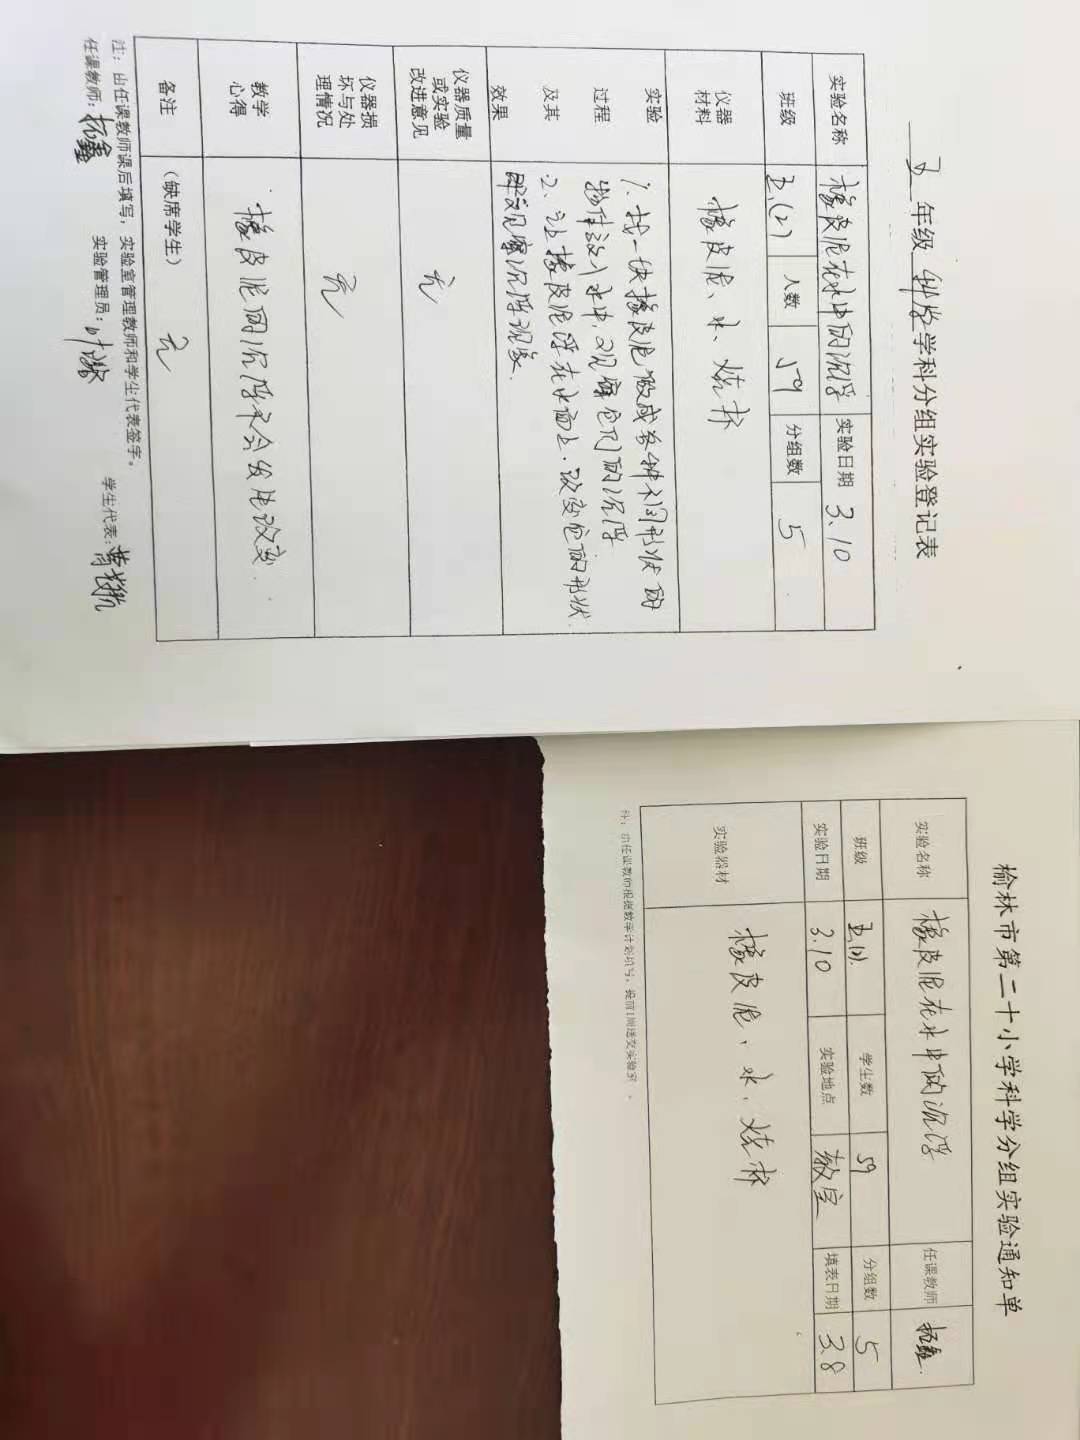 五年级科学学科分组实验登记表
实验名称 橡皮泥在水中的沉浮 实验日期 3.10
班级 五.(2) 人数 59 分组数 5
仪器材料 橡皮泥、水、烧杯
实验过程及其效果
1. 找一块橡皮泥做成各种不同形状的
物体放入水中,观察它们的沉浮
2. 让橡皮泥浮在水面上.改变它的形状
再次观察沉浮现象.
仪器质量或实验改进意见 无
仪器损坏与处理情况 无
教学心得 橡皮泥的沉浮不会发生改变.
备注 (缺席学生) 无
注:由任课教师课后填写,实验室管理教师和学生代表签字。
任课教师: 实验管理员: 学生代表:
榆林市第二十小学科学分组实验通知单
实验名称 橡皮泥在水中的沉浮 任课教师
班级 五.(2). 学生数 59 分组数 5
实验日期 3.10 实验地点 教室 填表日期 3.8
实验器材 橡皮泥、水、烧杯
注:由任课教师根据教学计划填写,提前1周送交实验室。